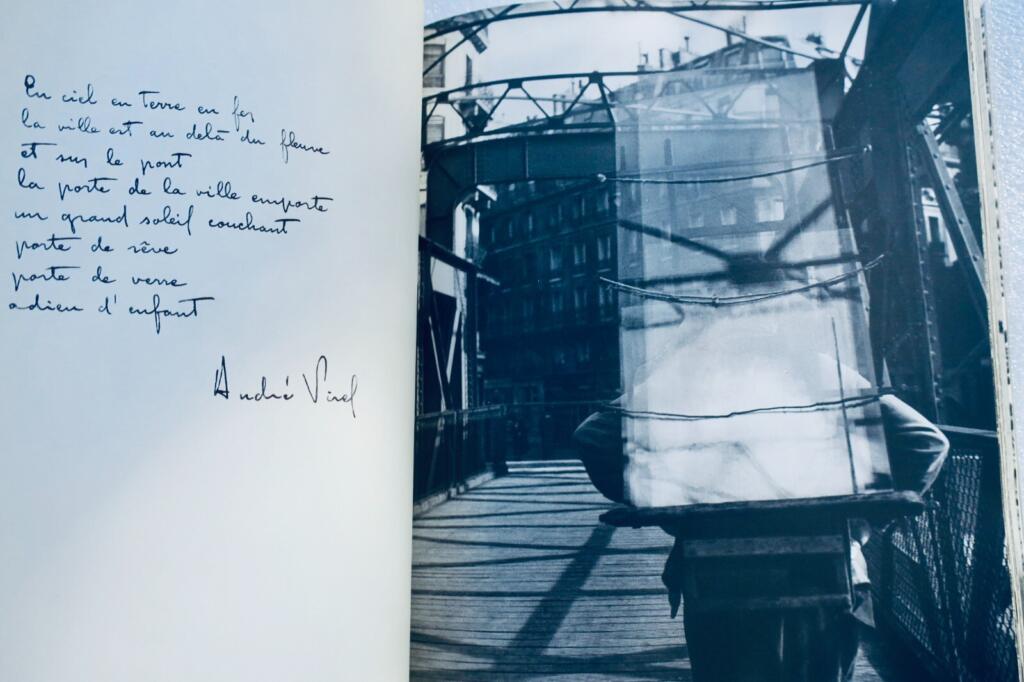 En ciel en Terre en fer
la ville est au delà du fleuve
et sur le pont
la porte de la ville emporte
un grand soleil couchant
porte de rêve
porte de verre
adieu d'enfant
André Virel